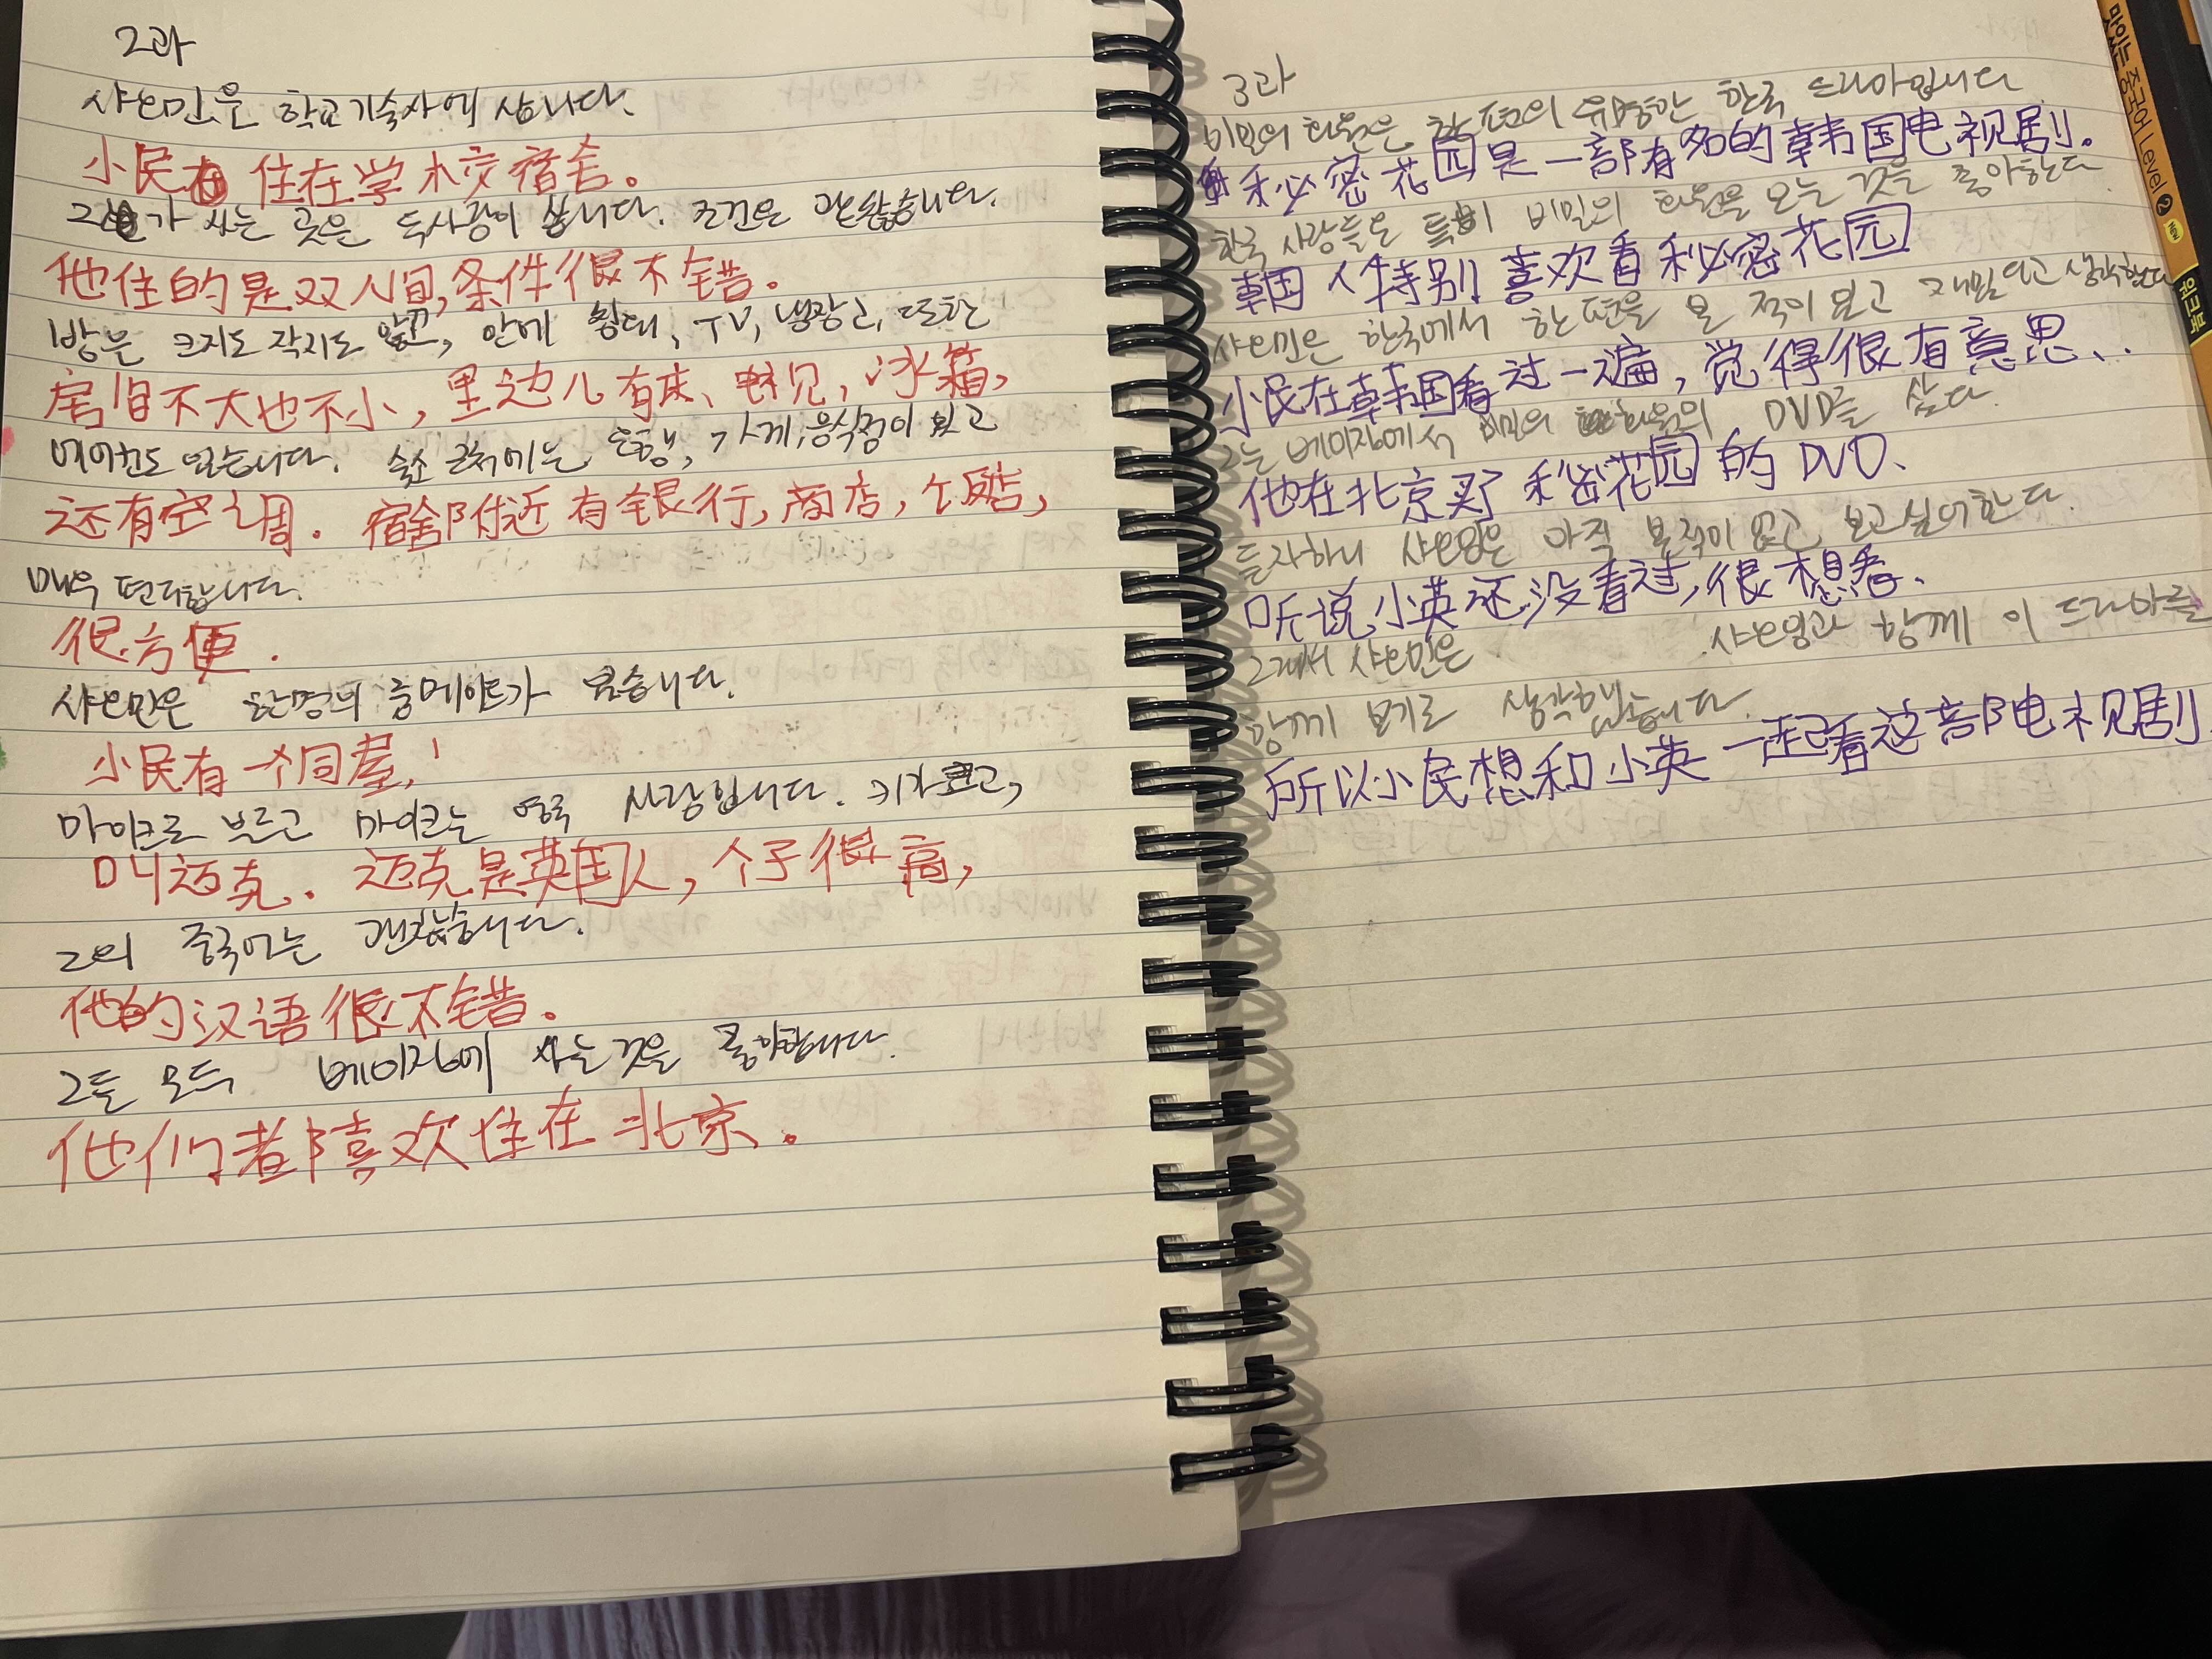 2과
샤오민은 학교기숙사에 삽니다.
小民 住在学校宿舍。
그가 사는 곳은 입니다. 조건은 괜찮습니다.
他住的是双人间,条件很不错。
방은 크지도 작지도 않고, 안에 침대, TV, 냉장고, 또한
房间不大也不小,里边儿有床、电视,冰箱,
에어컨도 있습니다. 숙소 근처에는 은행, 가게, 음식점이 있고
还有空调. 宿舍附近有银行,商店,个饭店,
매우 편리합니다.
很方便.
샤오민은 한명의 룸메이트가 있습니다.
小民有一个同屋,
마이크로 부르고 마이크는 영국 사람입니다. 키가 크고,
叫迈克. 迈克是英国人,个子很高,
그의 중국어는 괜찮습니다.
他的汉语很不错。
그들 모두 베이징에 사는것을 좋아합니다.
他们都喜欢住在北京。
3과
비밀의 화원은 한 편의 유명한 한국 드라마입니다
秘密花园是一部有名的韩国电视剧。
한국 사람들은 특히 비밀의 화원을 보는 것을 좋아한다
韩国人特别喜欢看秘密花园
샤오민은 한국에서 한 편을 본 적이 있고 재밌다고 생각했다
小民在韩国看过一遍,觉得很有意思、.
그는 베이징에서 비밀의 화원의 DVD를 샀다.
他在北京买了秘密花园的DVD、
듣자하니 샤오잉은 아직 본적이 없고 보고싶어한다.
听说小英还没看过,很想看、
그래서 샤오민은 샤오잉과 함께 이 드라마를
함께 보기로 생각했습니다.
所以小民想和小英一起看这部电视剧
맛있는 중국어 Level 2 New 워크북